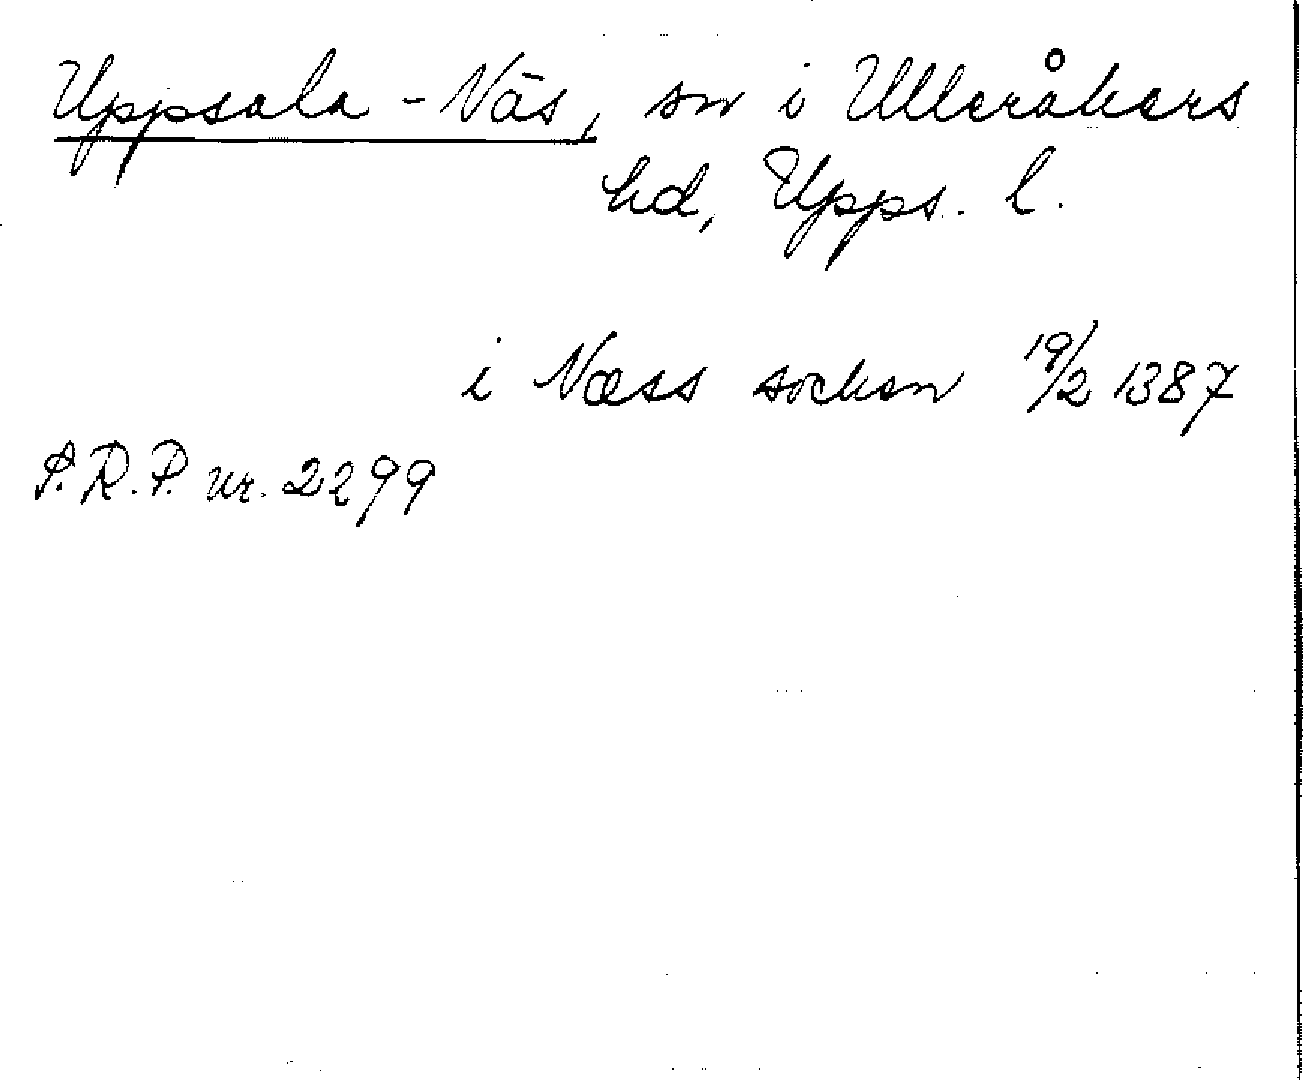 Uppsala-Näs, sn i Ulleråkers
hd, Upps. l.
i Næss sochen 19/2 1387
S.R.P. nr. 2299